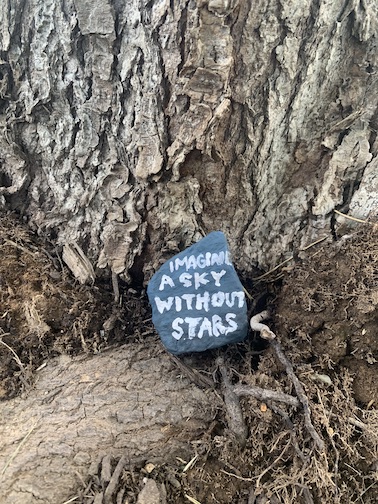 IMAGINE
A SKY
WITHOUT
STARS